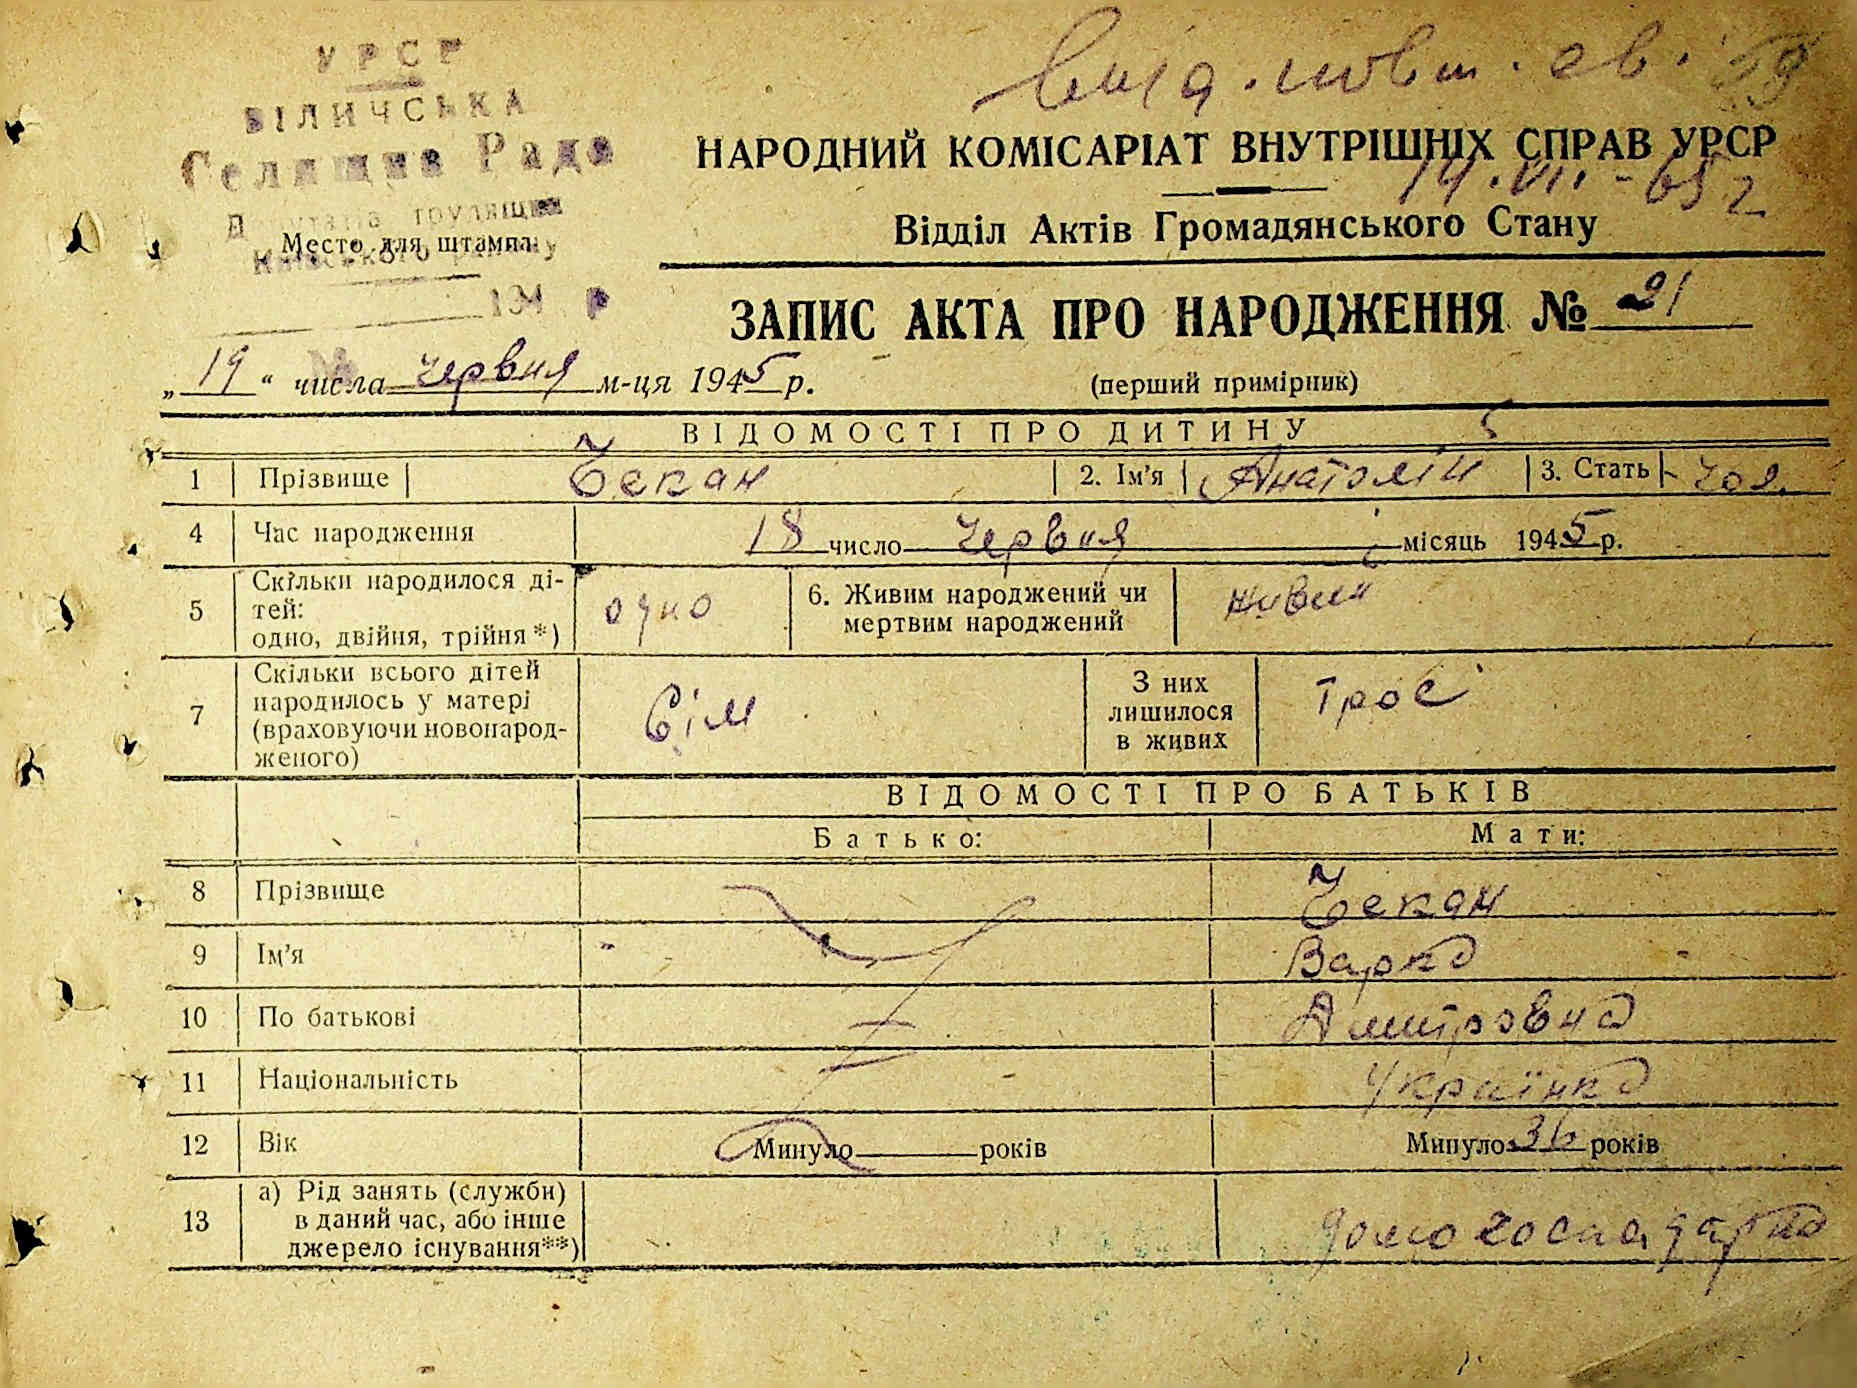 УРСР
БІЛИЧСЬКА
Селищна Рада
Депутатів трудящих
Київського району
Место для штампа
194 р
Вида. повт. св.
14.VII.-65 г
НАРОДНИЙ КОМІСАРІАТ ВНУТРІШНІХ СПРАВ УРСР
Відділ Актів Громадянського Стану
ЗАПИС АКТА ПРО НАРОДЖЕННЯ № 21
„19“ числа червня м-ця 1945 р. (перший примірник)
ВІДОМОСТІ ПРО ДИТИНУ
1 Прізвище Чекан 2. Ім'я Анатолій 3. Стать чол.
4 Час народження 18 число червня місяць 1945 р.
5 Скільки народилося ді-
тей:
одно, двійня, трійня*) одно 6. Живим народжений чи
мертвим народжений живий
7 Скільки всього дітей
народилось у матері
(враховуючи новонарод-
женого) Сім З них
лишилося
в живих троє
ВІДОМОСТІ ПРО БАТЬКІВ
Батько: Мати:
8 Прізвище Чекан
9 Ім'я Варка
10 По батькові Дмитровна
11 Національність Українка
12 Вік Минуло років Минуло 36 років
13 а) Рід занять (служби)
в даний час, або інше
джерело існування**) домогосподарка